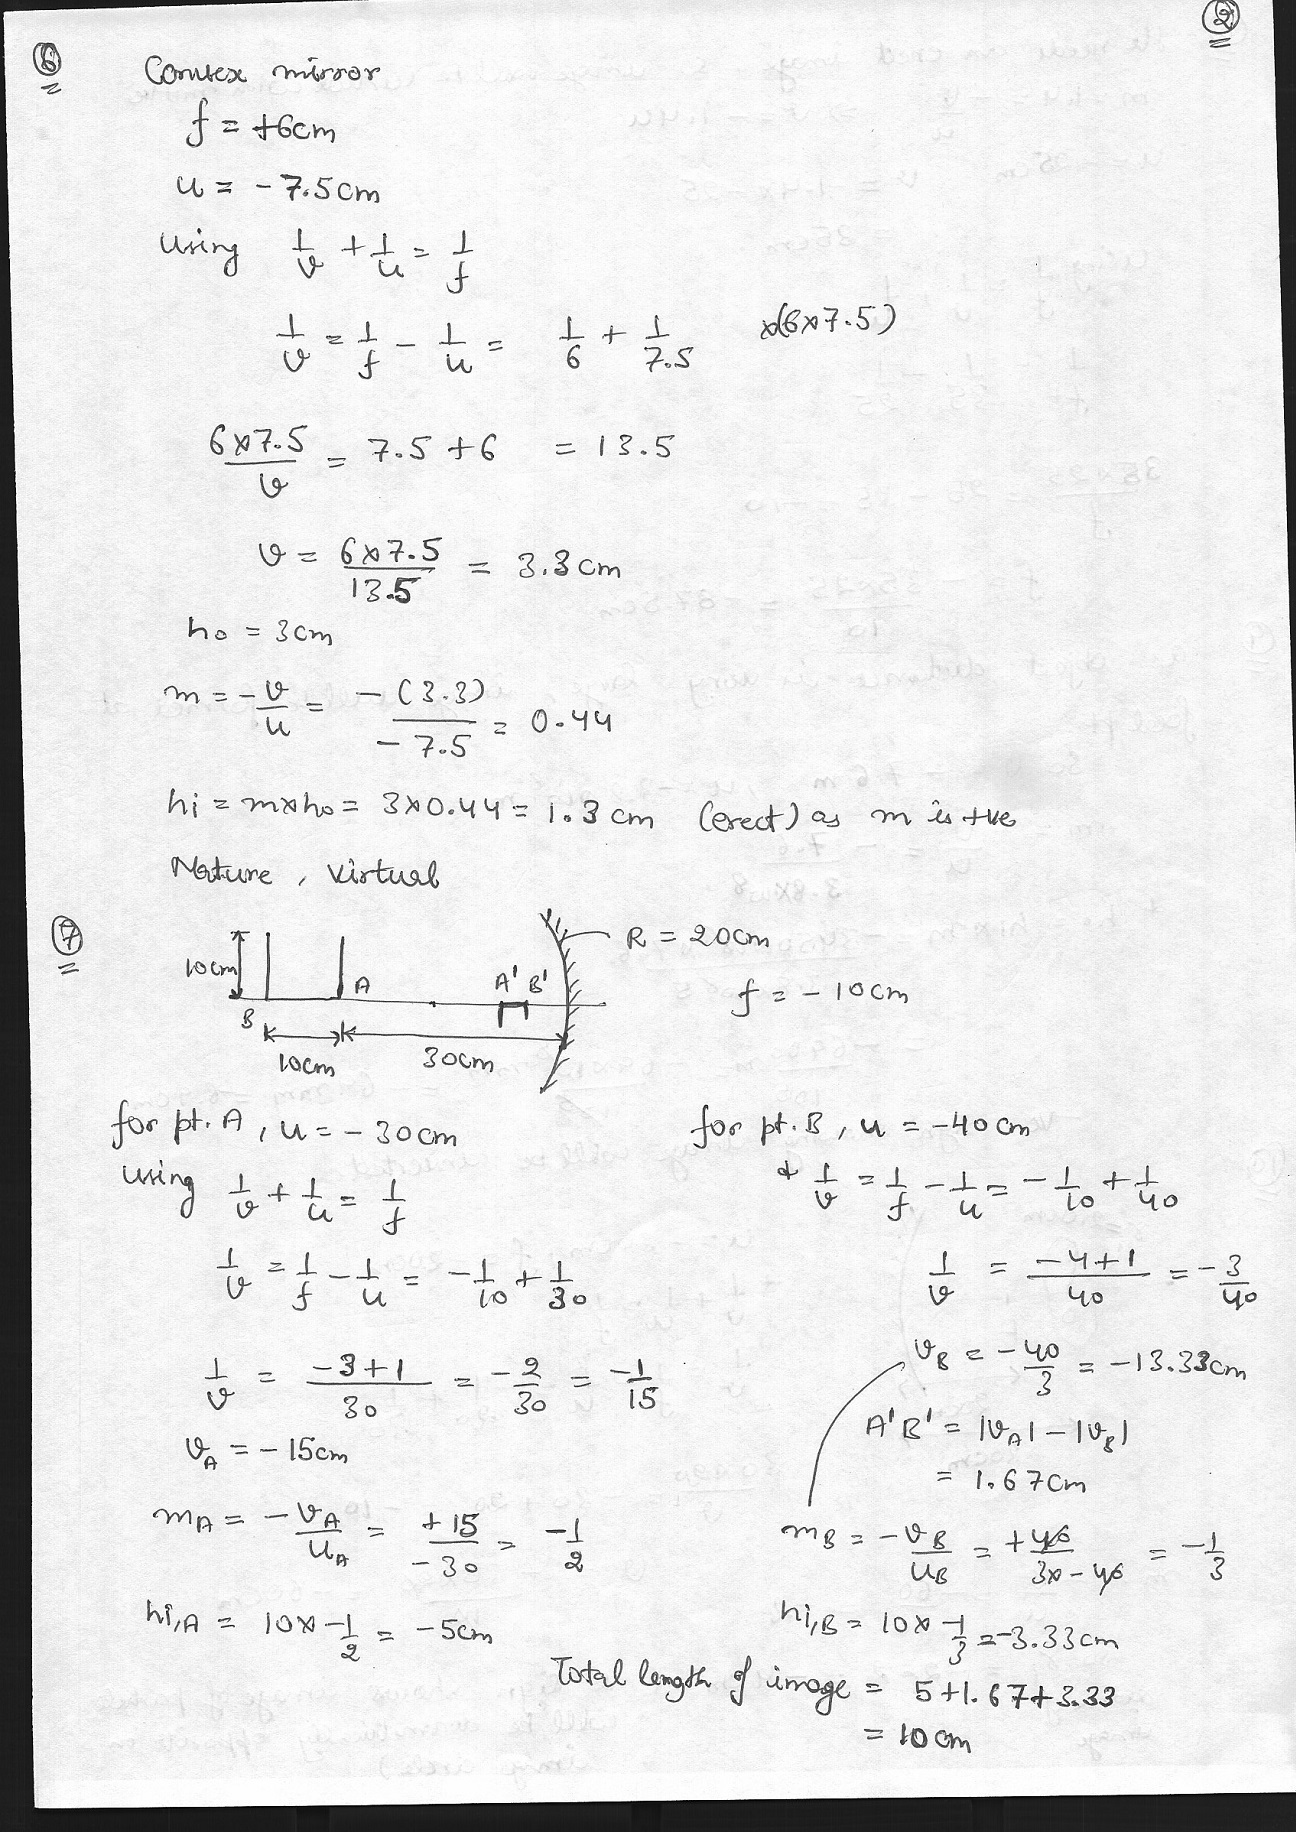 ②
⑥ Convex mirror
f = +6cm
u = - 7.5cm
Using 1/v + 1/u = 1/f
1/v = 1/f - 1/u = 1/6 + 1/7.5 x(6x7.5)
6x7.5/v = 7.5 + 6 = 13.5
v = 6x7.5/13.5 = 3.3cm
ho = 3cm
m = -v/u = -(3.3)/-7.5 = 0.44
hi = mxho = 3x0.44 = 1.3cm (erect) as m is +ve
Nature, virtual
⑦
R = 20cm
10cm A A' B' f = -10cm
B
10cm 30cm
for pt. A, u = -30cm
using 1/v + 1/u = 1/f
1/v = 1/f - 1/u = -1/10 + 1/30
1/v = -3+1/30 = -2/30 = -1/15
vA = -15cm
mA = -vA/uA = +15/-30 = -1/2
hi,A = 10x-1/2 = -5cm
for pt. B, u = -40cm
& 1/v = 1/f - 1/u = -1/10 + 1/40
1/v = -4+1/40 = -3/40
vB = -40/3 = -13.33cm
A'B' = |vA| - |vB|
= 1.67cm
mB = -vB/uB = +40/3x-40 = -1/3
hi,B = 10x-1/3 = -3.33cm
Total length of image = 5+1.67+3.33
= 10cm